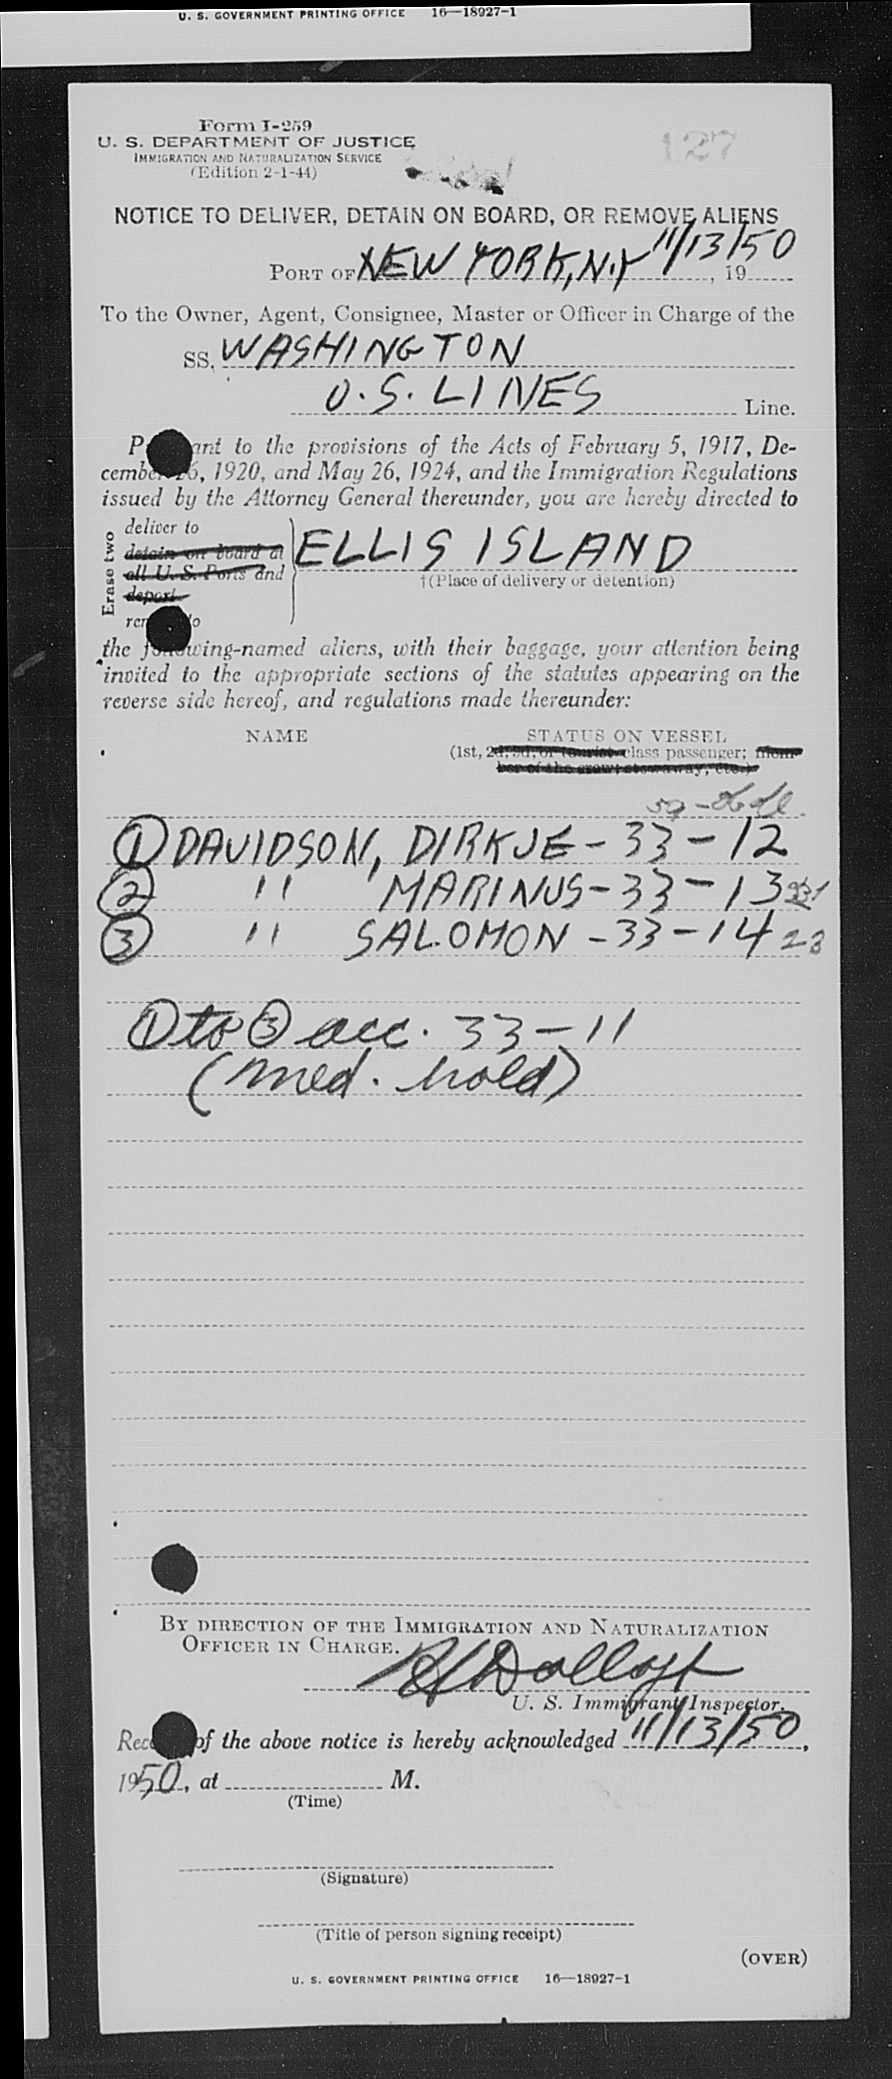 U. S. GOVERNMENT PRINTING OFFICE 16—18927-1
Form I-259
U. S. DEPARTMENT OF JUSTICE
IMMIGRATION AND NATURALIZATION SERVICE
(Edition 2-1-44)
127
NOTICE TO DELIVER, DETAIN ON BOARD, OR REMOVE ALIENS
PORT OF NEW YORK, N.Y 11/13/50, 19
To the Owner, Agent, Consignee, Master or Officer in Charge of the
SS. WASHINGTON
U.S. LINES Line.
ant to the provisions of the Acts of February 5, 1917, De-
cember 26, 1920, and May 26, 1924, and the Immigration Regulations
issued by the Attorney General thereunder, you are hereby directed to
Erase two
deliver to
detain on board at
all U. S. Ports and
deport
to
ELLIS ISLAND
†(Place of delivery or detention)
the following-named aliens, with their baggage, your attention being
invited to the appropriate sections of the statutes appearing on the
reverse side hereof, and regulations made thereunder:
NAME STATUS ON VESSEL
(1st, 2d, 3d, or tourist class passenger; mem-
ber of the crew; stowaway, etc.)
① DAVIDSON, DIRKJE - 33 - 12
② " MARINUS - 33 - 13
③ " SALOMON - 33 - 14 23
① to ③ acc. 33 - 11
(med. hold)
BY DIRECTION OF THE IMMIGRATION AND NATURALIZATION
OFFICER IN CHARGE.
U. S. Immigrant Inspector.
of the above notice is hereby acknowledged 11/13/50,
1950, at M.
(Time)
(Signature)
(Title of person signing receipt)
(OVER)
U. S. GOVERNMENT PRINTING OFFICE 16—18927-1